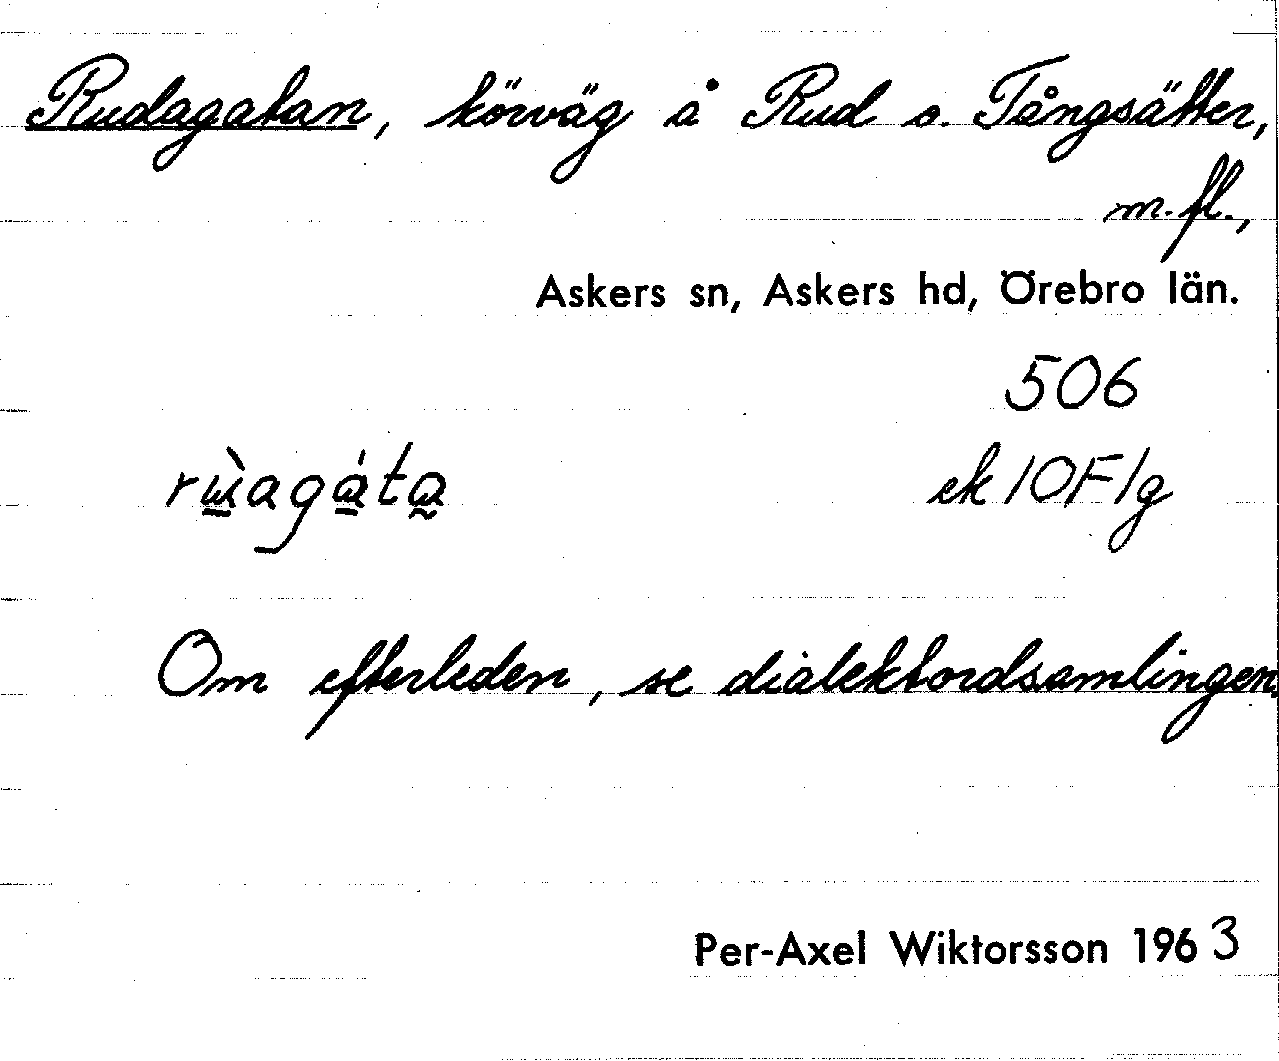 Rudagatan, körväg å Rud o. Tångsätter,
m.fl.,
Askers sn, Askers hd, Örebro län.
506
rɯ̀agáta
ek 10F1g
Om efterleden, se dialektordsamlingen.
Per-Axel Wiktorsson 1963